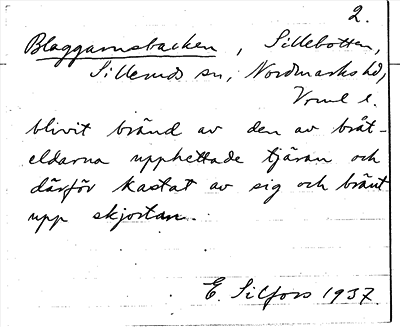 2.
Blaggarnsbacken, Sillebotten,
Sillerud sn, Nordmarks hd,
Vrml l.
blivit bränd av den av bråt-
eldarna upphettade tjäran och
därför kastat av sig och bränt
upp skjortan.
E. Silfors 1937.